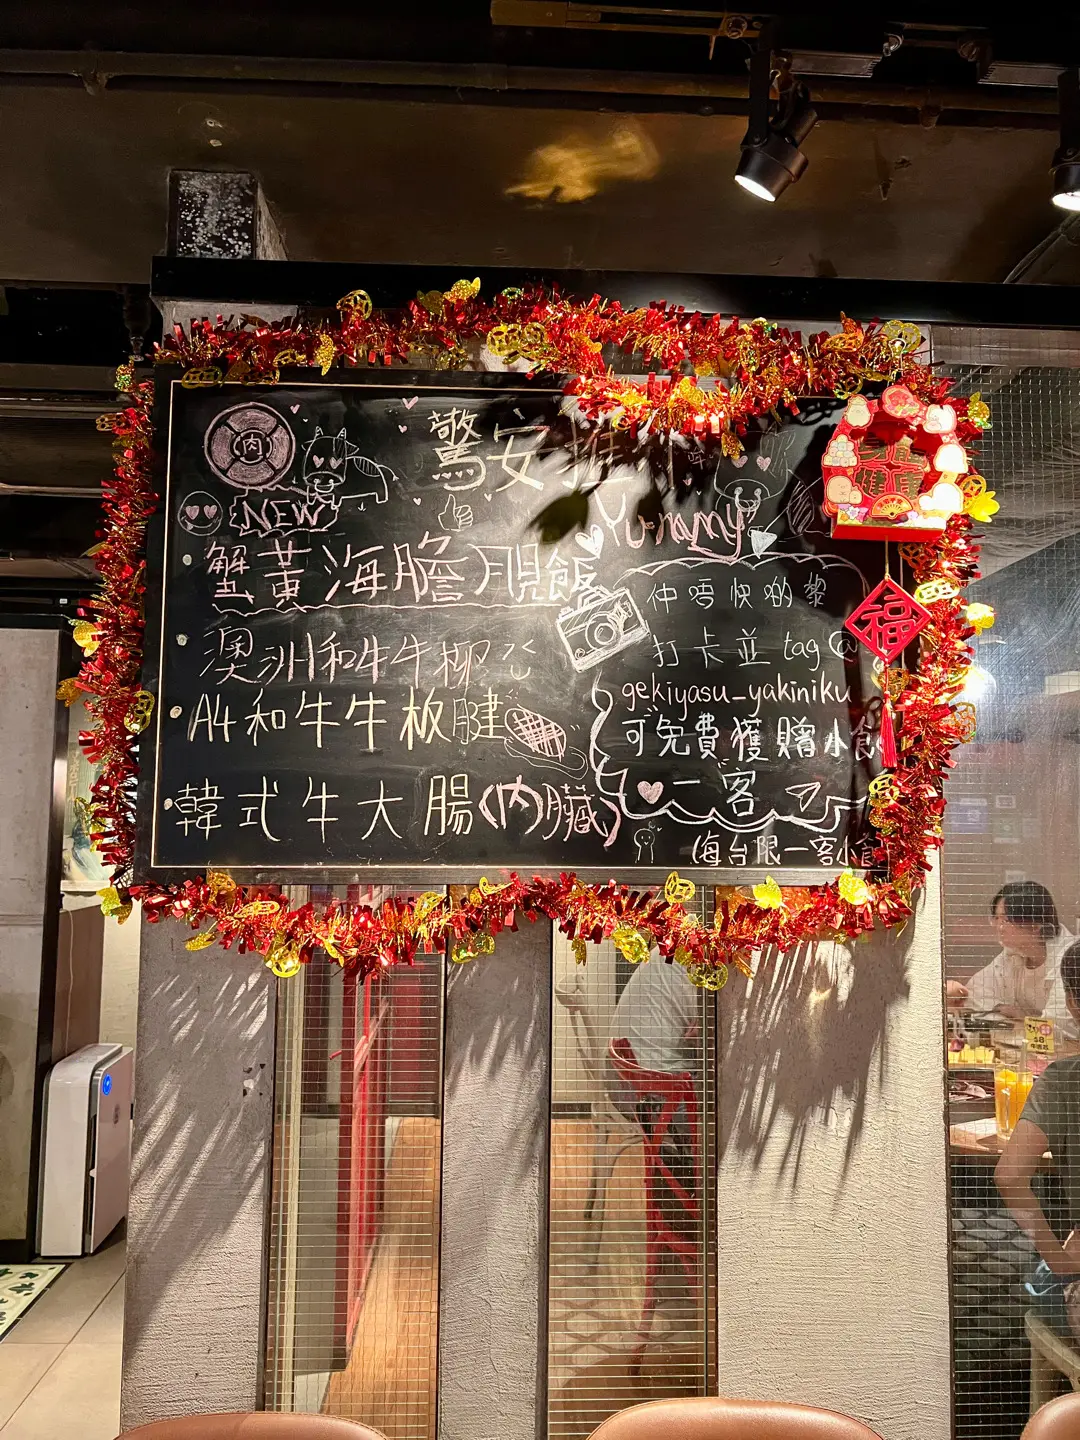 肉
NEW
驚安推
Yummy
蟹黃海膽
飯
澳洲和牛牛柳
A4和牛牛板腱
韓式牛大腸(內臟)
仲唔快啲黎
打卡並 tag @
gekiyasu_yakiniku
可免費獲贈小食
一客
(每台限一客小食
身體
健康
福